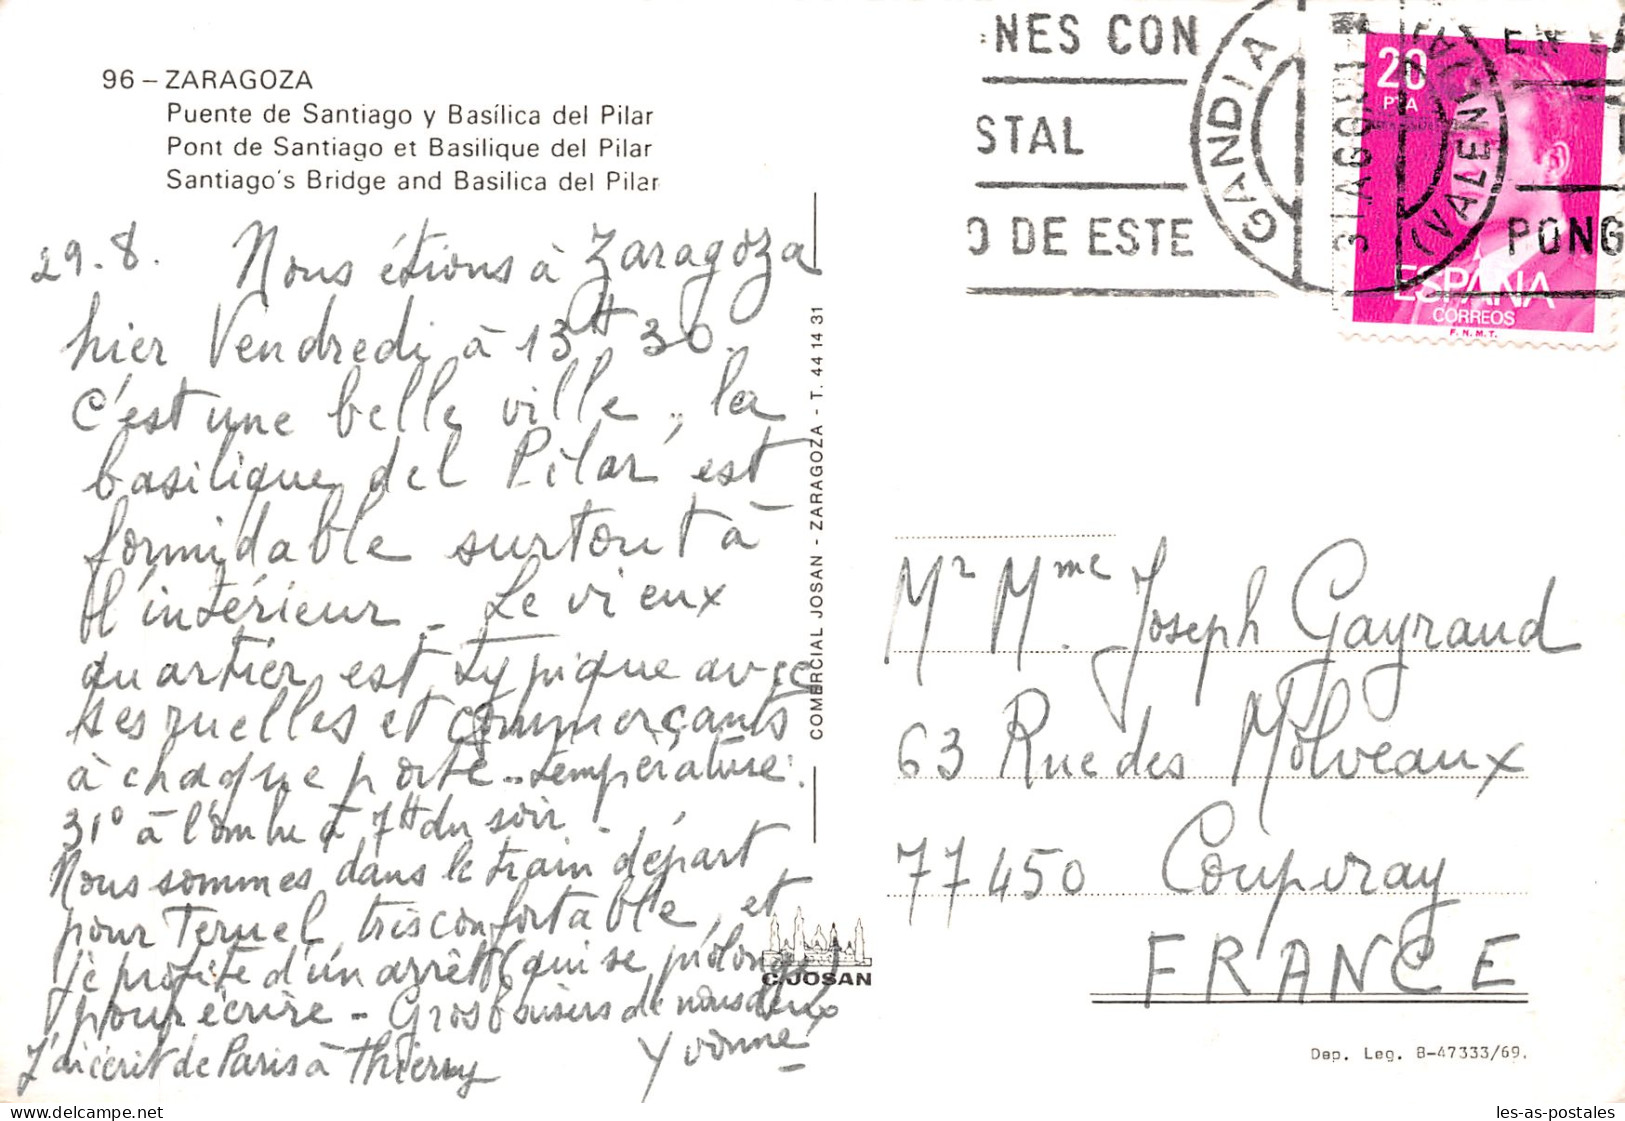 96 – ZARAGOZA
Puente de Santiago y Basílica del Pilar
Pont de Santiago et Basilique del Pilar
Santiago's Bridge and Basilica del Pilar
29.8. Nous étions à Zaragoza
hier Vendredi à 13H 30.
C'est une belle ville, la
basilique del Pilar est
formidable surtout à
l'intérieur - Le vieux
quartier est typique avec
ses ruelles et commerçants
à chaque porte - température:
31° à l'ombre à 7H du soir.
Nous sommes dans le train départ
pour Teruel très confortable, et
je profite d'un arrêt (qui se prolonge)
pour écrire - Gros baisers de nous deux
Yvonne
J'ai écrit de Paris à Thierry
COMERCIAL JOSAN - ZARAGOZA - T. 44 14 31
C.JOSAN
NES CON
STAL
O DE ESTE
GANDIA
(VALENCIA)
PONG
20
PTA
ESPAÑA
CORREOS
F.N.M.T.
Mr Mme Joseph Gayraud
63 Rue des Molveaux
77450 Coupvray
FRANCE
Dep. Leg. B-47333/69.
les-as-postales